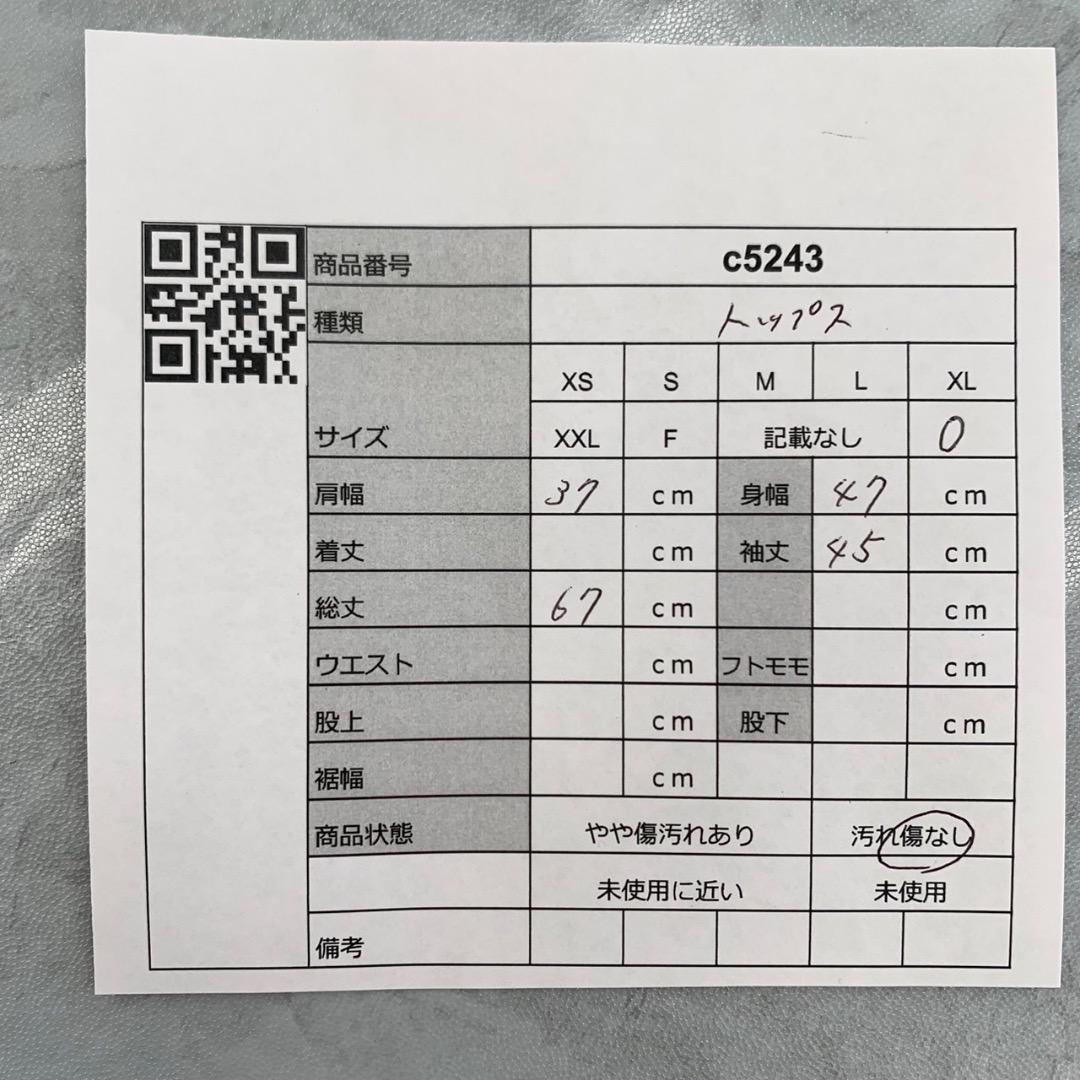 商品番号 c5243
種類 トップス
XS S M L XL
サイズ XXL F 記載なし 0
肩幅 37 cm 身幅 47 cm
着丈 cm 袖丈 45 cm
総丈 67 cm cm
ウエスト cm フトモモ cm
股上 cm 股下 cm
裾幅 cm
商品状態 やや傷汚れあり 汚れ傷なし
未使用に近い 未使用
備考